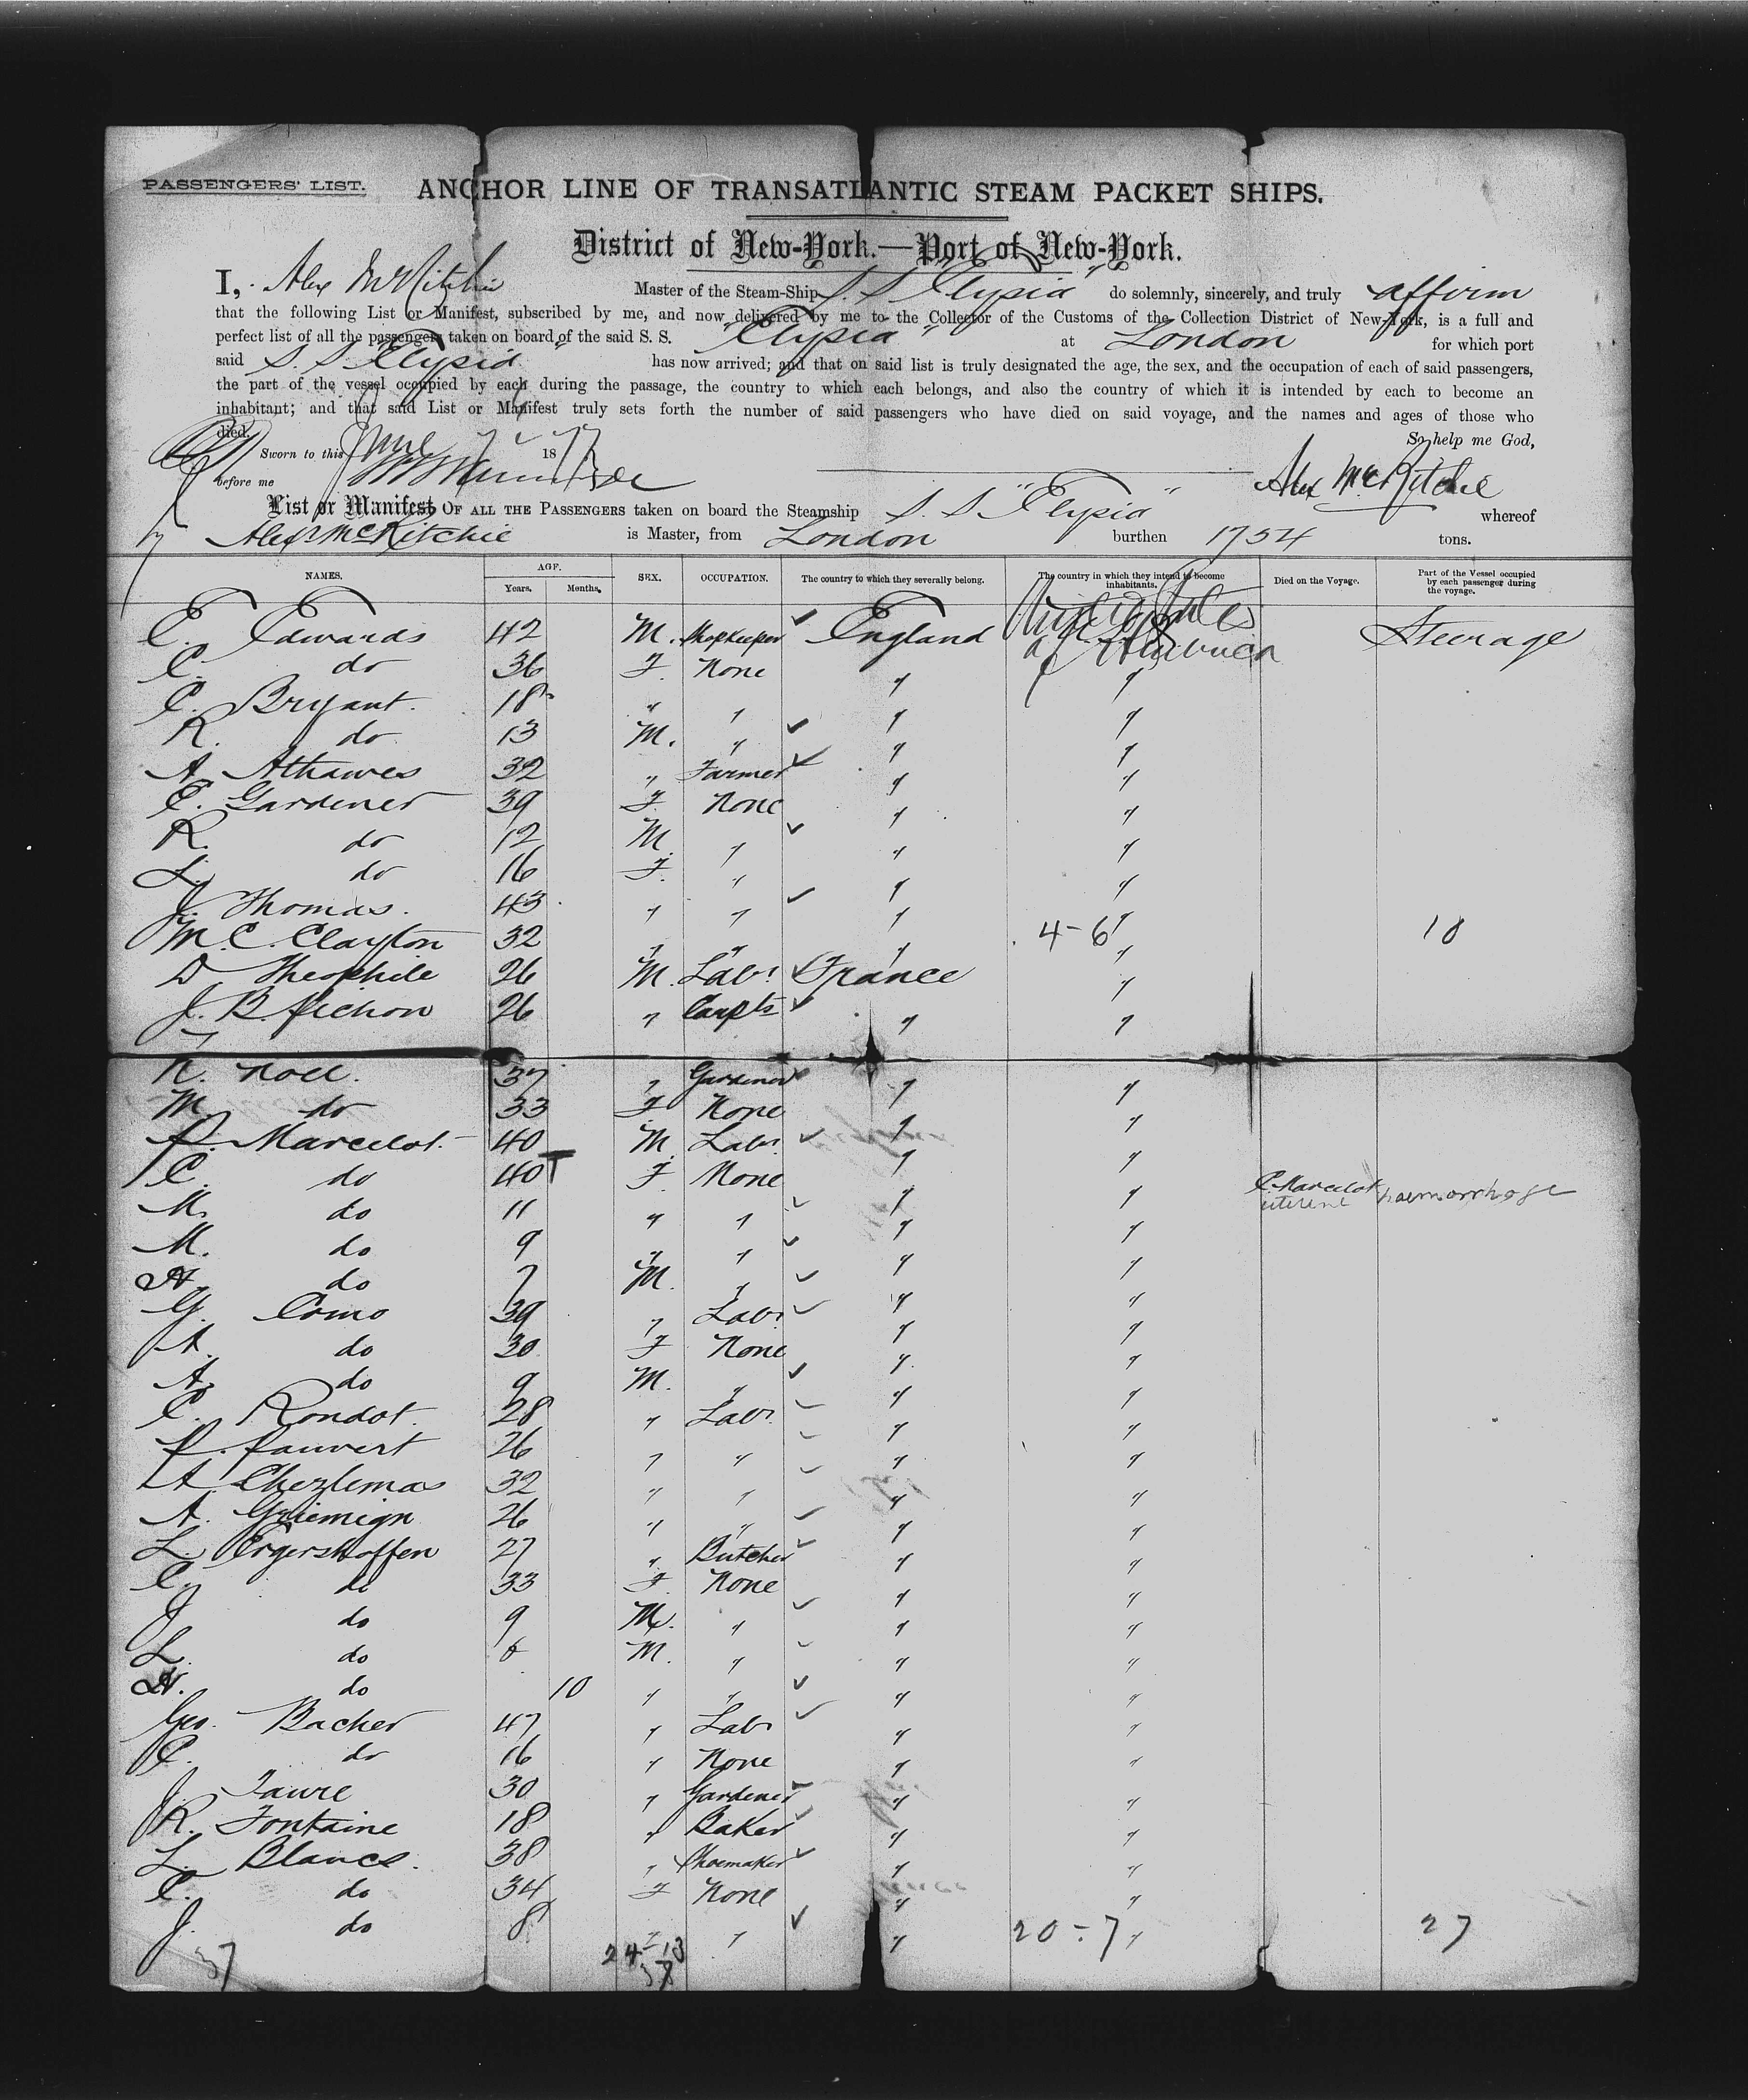 PASSENGERS' LIST. ANCHOR LINE OF TRANSATLANTIC STEAM PACKET SHIPS.
District of New-York.—Port of New-York.
I, Alex McRitchie Master of the Steam-Ship S. S "Elysia" do solemnly, sincerely, and truly affirm
that the following List or Manifest, subscribed by me, and now delivered by me to the Collector of the Customs of the Collection District of New-York, is a full and
perfect list of all the passengers taken on board of the said S. S. "Elysia" at London for which port
said S. S "Elysia" has now arrived; and that on said list is truly designated the age, the sex, and the occupation of each of said passengers,
the part of the vessel occupied by each during the passage, the country to which each belongs, and also the country of which it is intended by each to become an
inhabitant; and that said List or Manifest truly sets forth the number of said passengers who have died on said voyage, and the names and ages of those who
died. So help me God,
Sworn to this June 7 1877
before me Alex McRitchie
List or Manifest OF ALL THE PASSENGERS taken on board the Steamship S. S "Elysia" whereof
Alexr McRitchie is Master, from London burthen 1754 tons.
NAMES. AGE. Years. Months. SEX. OCCUPATION. The country to which they severally belong. The country in which they intend to become inhabitants. Died on the Voyage. Part of the Vessel occupied by each passenger during the voyage.
E. Edwards 42 M. Shopkeeper England United States of America Steerage
C. do 36 F. None " "
C. Bryant. 18 " " " "
R. do 13 M. " " "
A. Athawes 32 " Farmer " "
C. Gardener 39 F. None " "
R. do 12 M. " " "
L. do 16 F. " " "
J. Thomas. 43 " " " "
M. C. Clayton 32 " " " 4-6 " 10
D Theophile 26 M. Labr. France "
J. B. Pichon 26 " Carptr " "
N. Noel. 37 " Gardener " "
M do 33 F None " "
P. Marcelot. 40 M. Labr. " "
C. do 40 F. None " " C. Marcelot uterine haemorrhage
M. do 11 " " " "
M. do 9 " " " "
A. do 7 M. " " "
G. Como 39 " Labr " "
A. do 30 F None " "
A. do 9 M. " " "
C. Rondot. 28 " Labr. " "
P. Pauvert 26 " " " "
A Chezlemas 32 " " " "
A. 26 " " " "
L. Ergershoffen 27 " Butcher " "
C. do 33 F. None " "
J do 9 M. " " "
L. do 6 M. " " "
H. do 10 " " " "
Geo. Bacher 47 " Labr " "
C. do 16 " None " "
J. Faure 30 " Gardener " "
R. Fontaine 18 " Baker " "
L. Blance. 38 " Shoemaker " "
C. do 34 F None " "
J. do 8 F " " 20-7 " 27
37 24-13
37